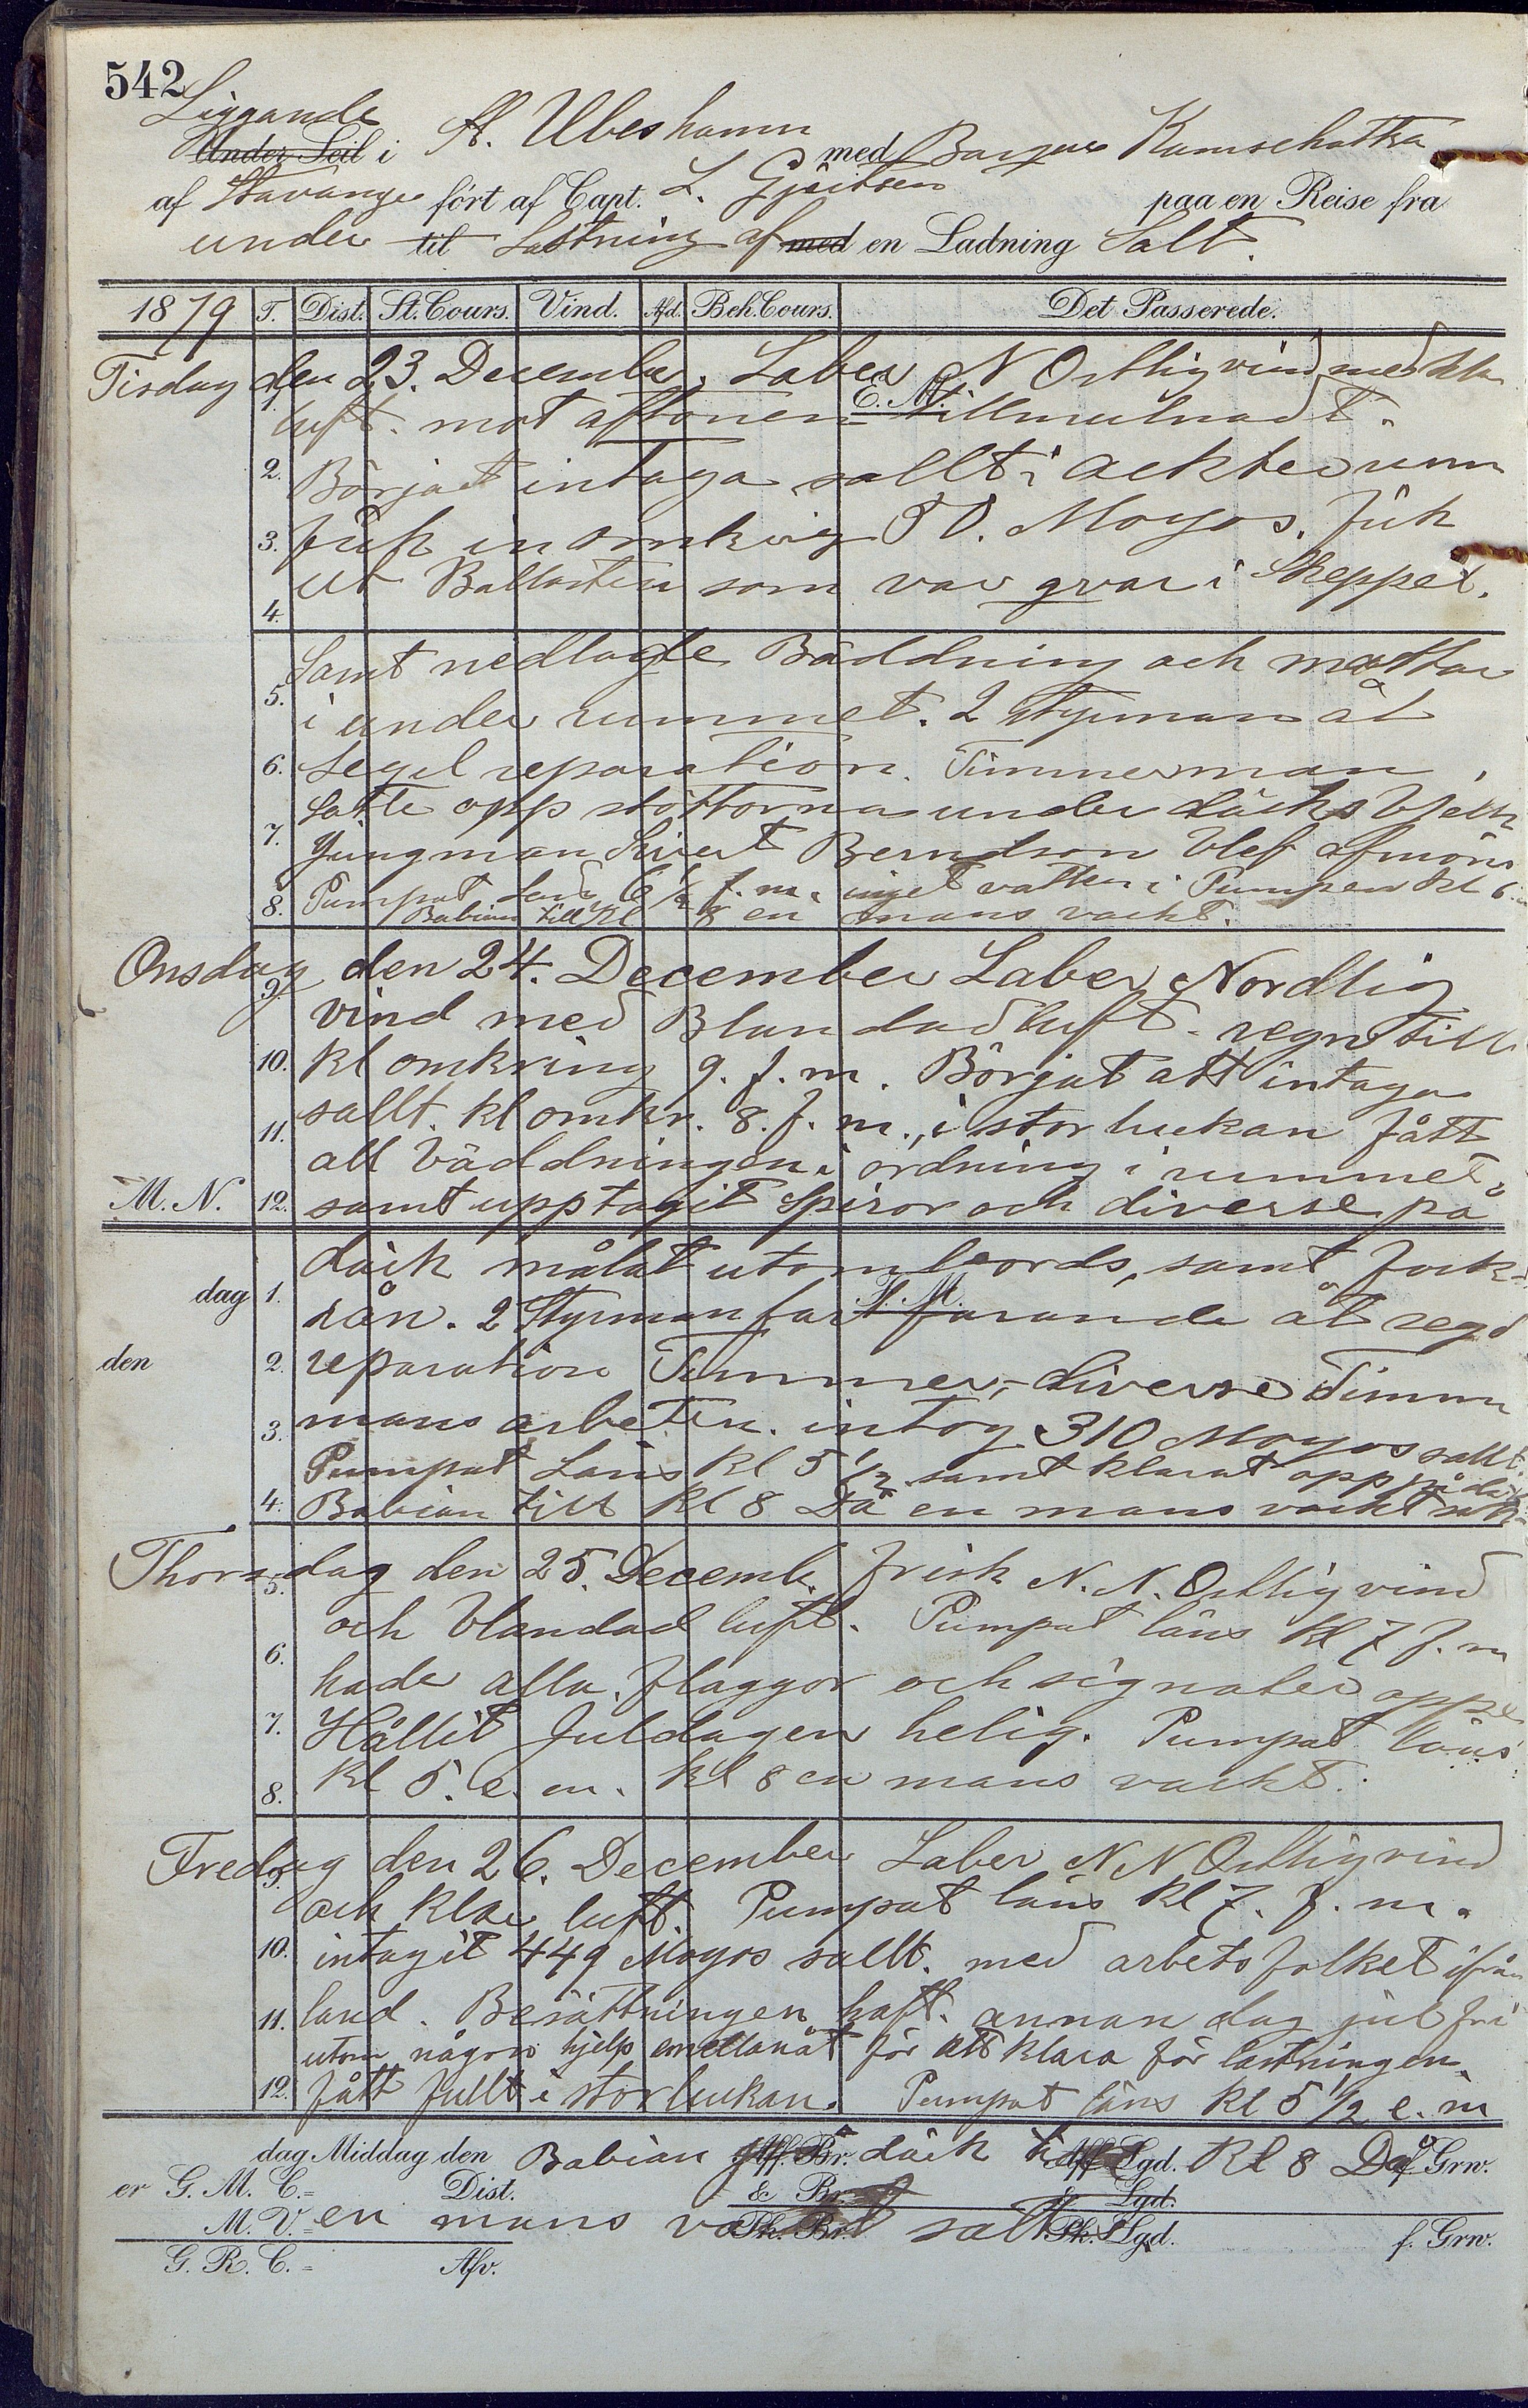 542
Liggande
Under Seil i St. Ubes hamn med Barque Kamschatka
af Stavanger fört af Capt. L. Gjöitsen paa en Reise fra
under til Lastning af med en Ladning Salt.
1879 T. Dist. St. Cours. Vind. Afd. Beh. Cours. Det Passerede.
Tisdag den 23. December. Laber N Ostlig vind med klar
E. M.
1. luft. mot aftonen tillmulnadt.
2. Börjat intaga sallt i ackter rum
3. fick in omkring 50. Moyos. fick
4. ut Ballasten som var qvar i Skeppet.
Samt nedlagte Bäddning och mattor
5. i under rummet. 2 Styrman åt
6. Segel reparation. Timmerman
Satte opp stöttorna under däcks
7. Jungman Sivert Berndson blef afmönst
8. Pumpat läns 6 1/2 f.m. inget vatten i Pumpen kl 6
Babian till kl 8 en mans vackt.
Onsdag den 24. December Laber Nordlig
9. vind med Blandad luft. regn till
10. kl omkring 9. f. m. Börjat att intaga
11. sallt. kl omkr. 8. f. m., i stor luckan fått
all bäddningen i ordning i rummet,
M. N. 12. samt upptagit Spiror och diverse på
däck målat utombords, samt fock
F. M.
dag 1. rån. 2 Styrman fortfarande åt segel
den 2. reparation Timmer,- diverse Timmer
3. mans arbeten. intog 310 Moyos sallt.
Pumpat Läns kl 5 1/2 samt klarat opp på däck
4. Babian till kl 8 Då en mans vackt sattes
Thorsdag den 25. Decemb. frisk N. N. Ostlig vind
5. och blandad luft. Pumpat läns kl 7 f. m
6. hade alla flaggor och signaler oppe
7. Hållit Juldagen helig. Pumpat läns
8. kl 5. e. m. kl 8 en mans vackt.
Fredag den 26. December Laber N N Ostlig vind
9. och klar luft. Pumpat läns kl 7. f. m.
10. intagit 449 Moyos sallt. med arbets folket ifrån
11. land. Besättningen haft. annan dag jul fri
utom någon hjelp emellanåt för att klara för lastningen.
12. fått fullt i stor luckan. Pumpat läns kl 5 1/2 e. m
dag Middag den Babian på Aff. Br. däck till Aff. Lgd. kl 8 Då af Grw.
er G. M. C.= Dist. & Br. & Lgd.
M. V.= en mans vackt Pk. Br. satt Pk. Lgd. f. Grw.
G. R. C.= Afv.